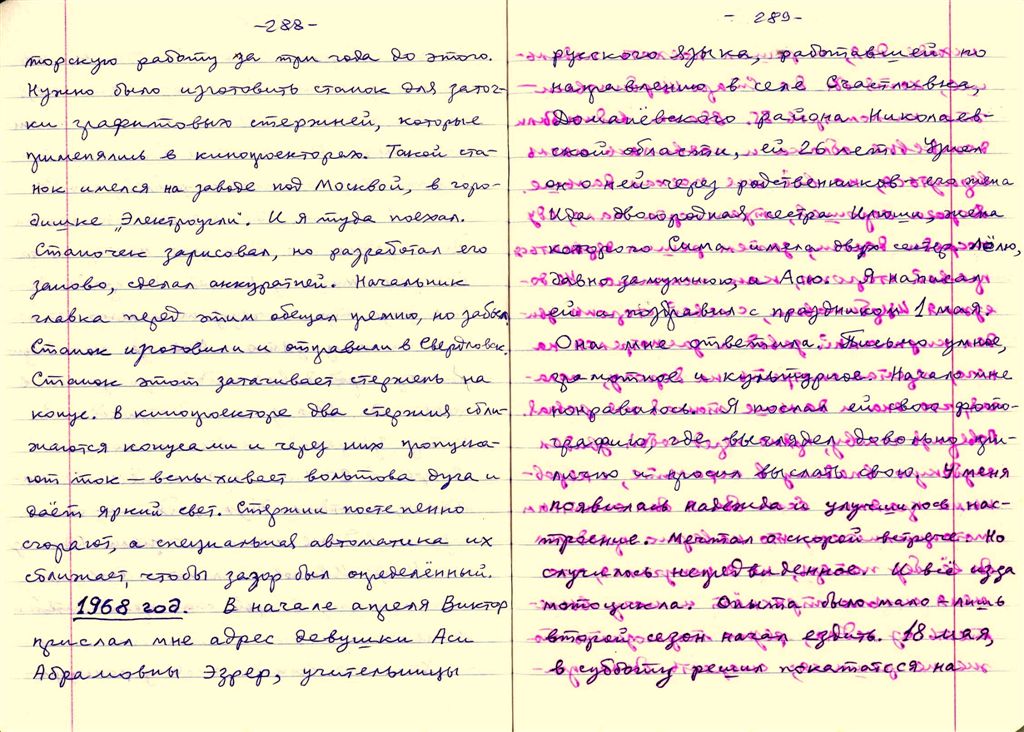 -288-
торскую работу за три года до этого.
Нужно было изготовить станок для заточ-
ки графитовых стержней, которые
применялись в кинопроекторах. Такой ста-
нок имелся на заводе под Москвой, в горо-
дишке „Электроугли". И я туда поехал.
Станочек зарисовал, но разработал его
заново, сделал аккуратней. Начальник
главка перед этим обещал премию, но забыл.
Станок изготовили и отправили в Свердловск.
Станок этот затачивает стержень на
конус. В кинопроекторе два стержня сбли-
жаются конусами и через них пропуска-
ют ток — вспыхивает вольтова дуга и
даёт яркий свет. Стержни постепенно
сгорают, а специальная автоматика их
сближает, чтобы зазор был определённый.
1968 год. В начале апреля Виктор
прислал мне адрес девушки Аси
Абрамовны Эзрер, учительницы
- 289-
русского языка, работавшей по
направлению в селе Счастливка,
Доманёвского района Николаев-
ской области, ей 26 лет. Узнал
он о ней через родственников его жена
Ида двоюродная сестра Ирмы жена
которого Сима имела двух сестер Лёлю,
давно замужнюю, а Асю. Я написал
ей и поздравил с праздником 1 мая.
Она мне ответила. Письмо умное,
грамотное и культурное. Начало мне
понравилось. Я послал ей свою фото-
графию, где выглядел довольно при-
лично, и просил выслать свою. У меня
появилась надежда и улучшилось нас-
троение. Мечтал о скорой встрече. Но
случилось непредвиденное. И всё из-за
мотоцикла. Опыта было мало а лишь
второй сезон начал ездить. 18 мая,
в субботу решил покататься на